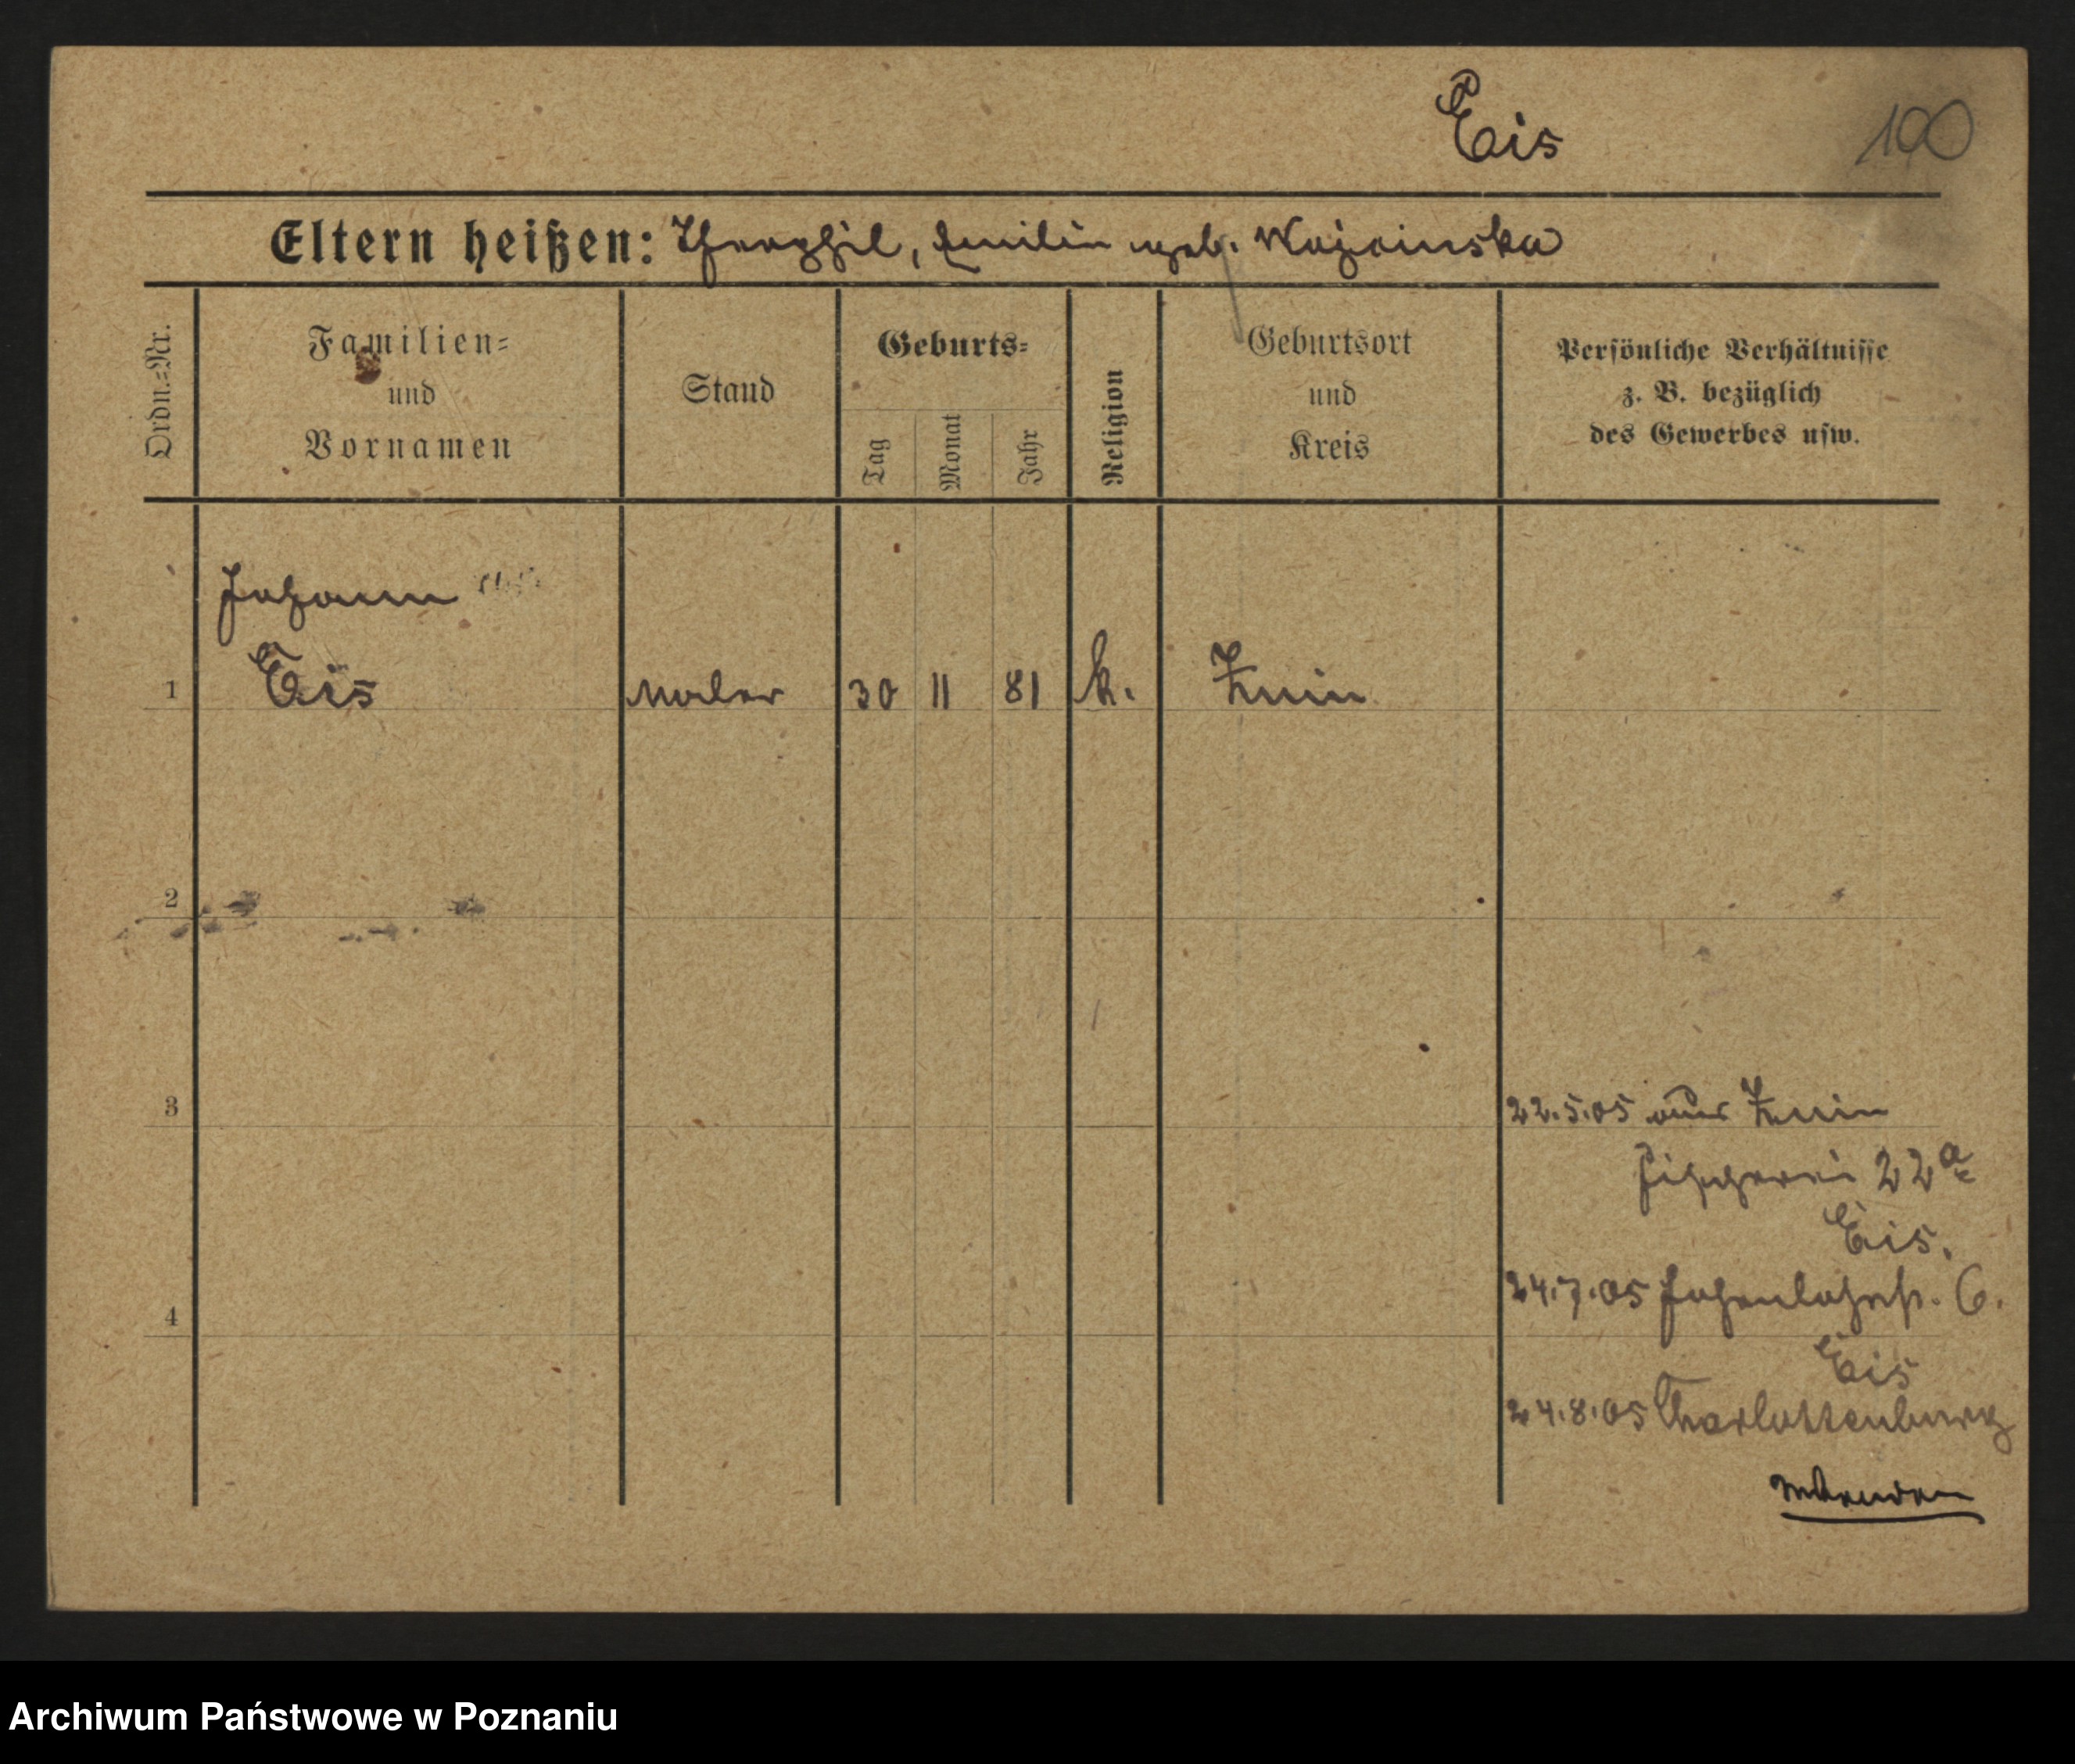 Eis
100
Eltern heißen: Theophil, Emilie geb. Wojcinska
Ordn.=Nr.
Familien=
und
Vornamen
Stand
Geburts=
Tag
Monat
Jahr
Religion
Geburtsort
und
Kreis
Persönliche Verhältnisse
z. B. bezüglich
des Gewerbes usw.
Johann
1 Eis Maler 30 11 81 k. Znin
2
3
22.5.05 aus Znin
Fischerei 22a
Eis.
24.7.05 Hohenlohestr. 6.
4
Eis
24.8.05 Charlottenburg
Archiwum Państwowe w Poznaniu